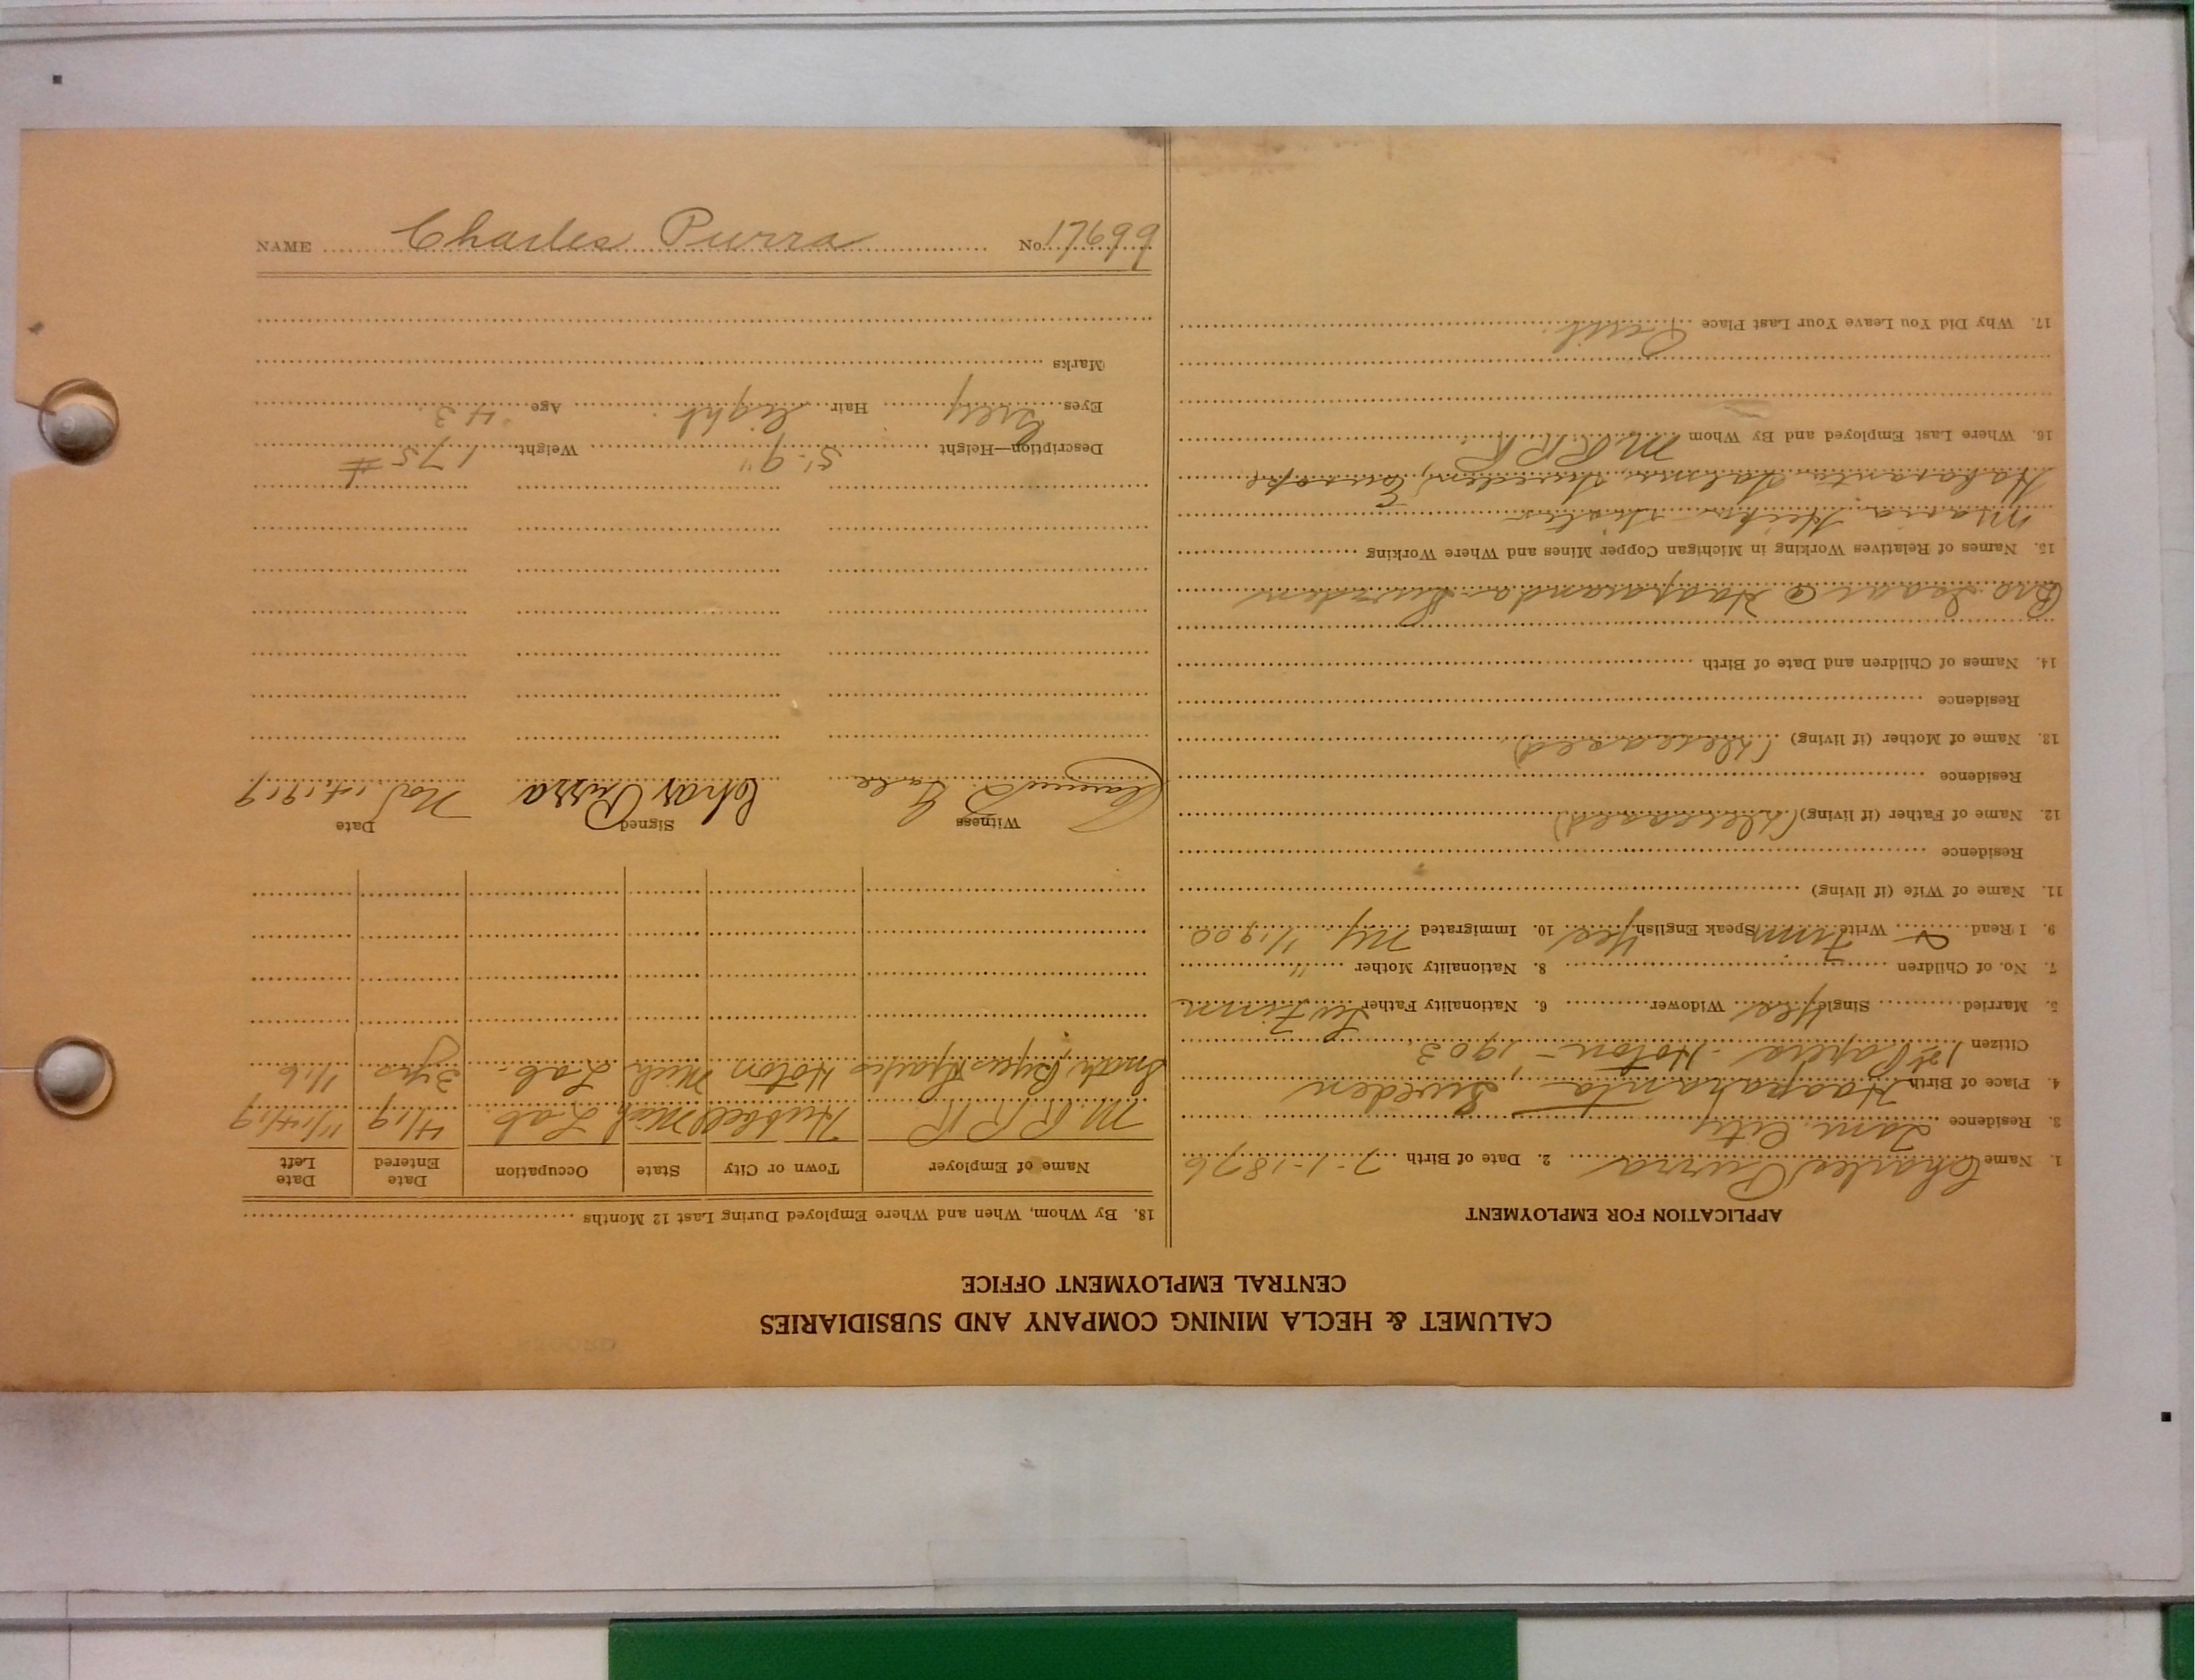 CALUMET & HECLA MINING COMPANY AND SUBSIDIARIES
CENTRAL EMPLOYMENT OFFICE
APPLICATION FOR EMPLOYMENT
1. Name Charles Purra 2. Date of Birth 7-1-1876
3. Residence Tam. City
4. Place of Birth Haaparanta, Sweden
Citizen 1st Papers - Hoton - 1903
5. Married Single Yes Widower 6. Nationality Father Sw Finn
7. No. of Children 8. Nationality Mother "
9. I Read & Write Finn Speak English Yes 10. Immigrated Ny 1/1900
11. Name of Wife (if living)
Residence
12. Name of Father (if living) (Deceased)
Residence
13. Name of Mother (if living) (Deceased)
Residence
14. Names of Children and Date of Birth
Bro Isaac @ Haaparanda Sweden
15. Names of Relatives Working in Michigan Copper Mines and Where Working
Maria
Sweden, Europe
16. Where Last Employed and By Whom M.R.R.R.
17. Why Did You Leave Your Last Place Quit.
18. By Whom, When and Where Employed During Last 12 Months
Name of Employer Town or City State Occupation Date Entered Date Left
M.R.R.R. Hubbell Mich Lab. 4/19 11/14/19
Smith, Byers Sparks Hoton Mich Lab. 3 yrs 1/16
Witness Signed Date
Chas Purra Nov. 14, 1919
Description—Height 5'-9" Weight 175 #
Eyes Grey Hair light Age 43
Marks
NAME Charles Purra No. 17699